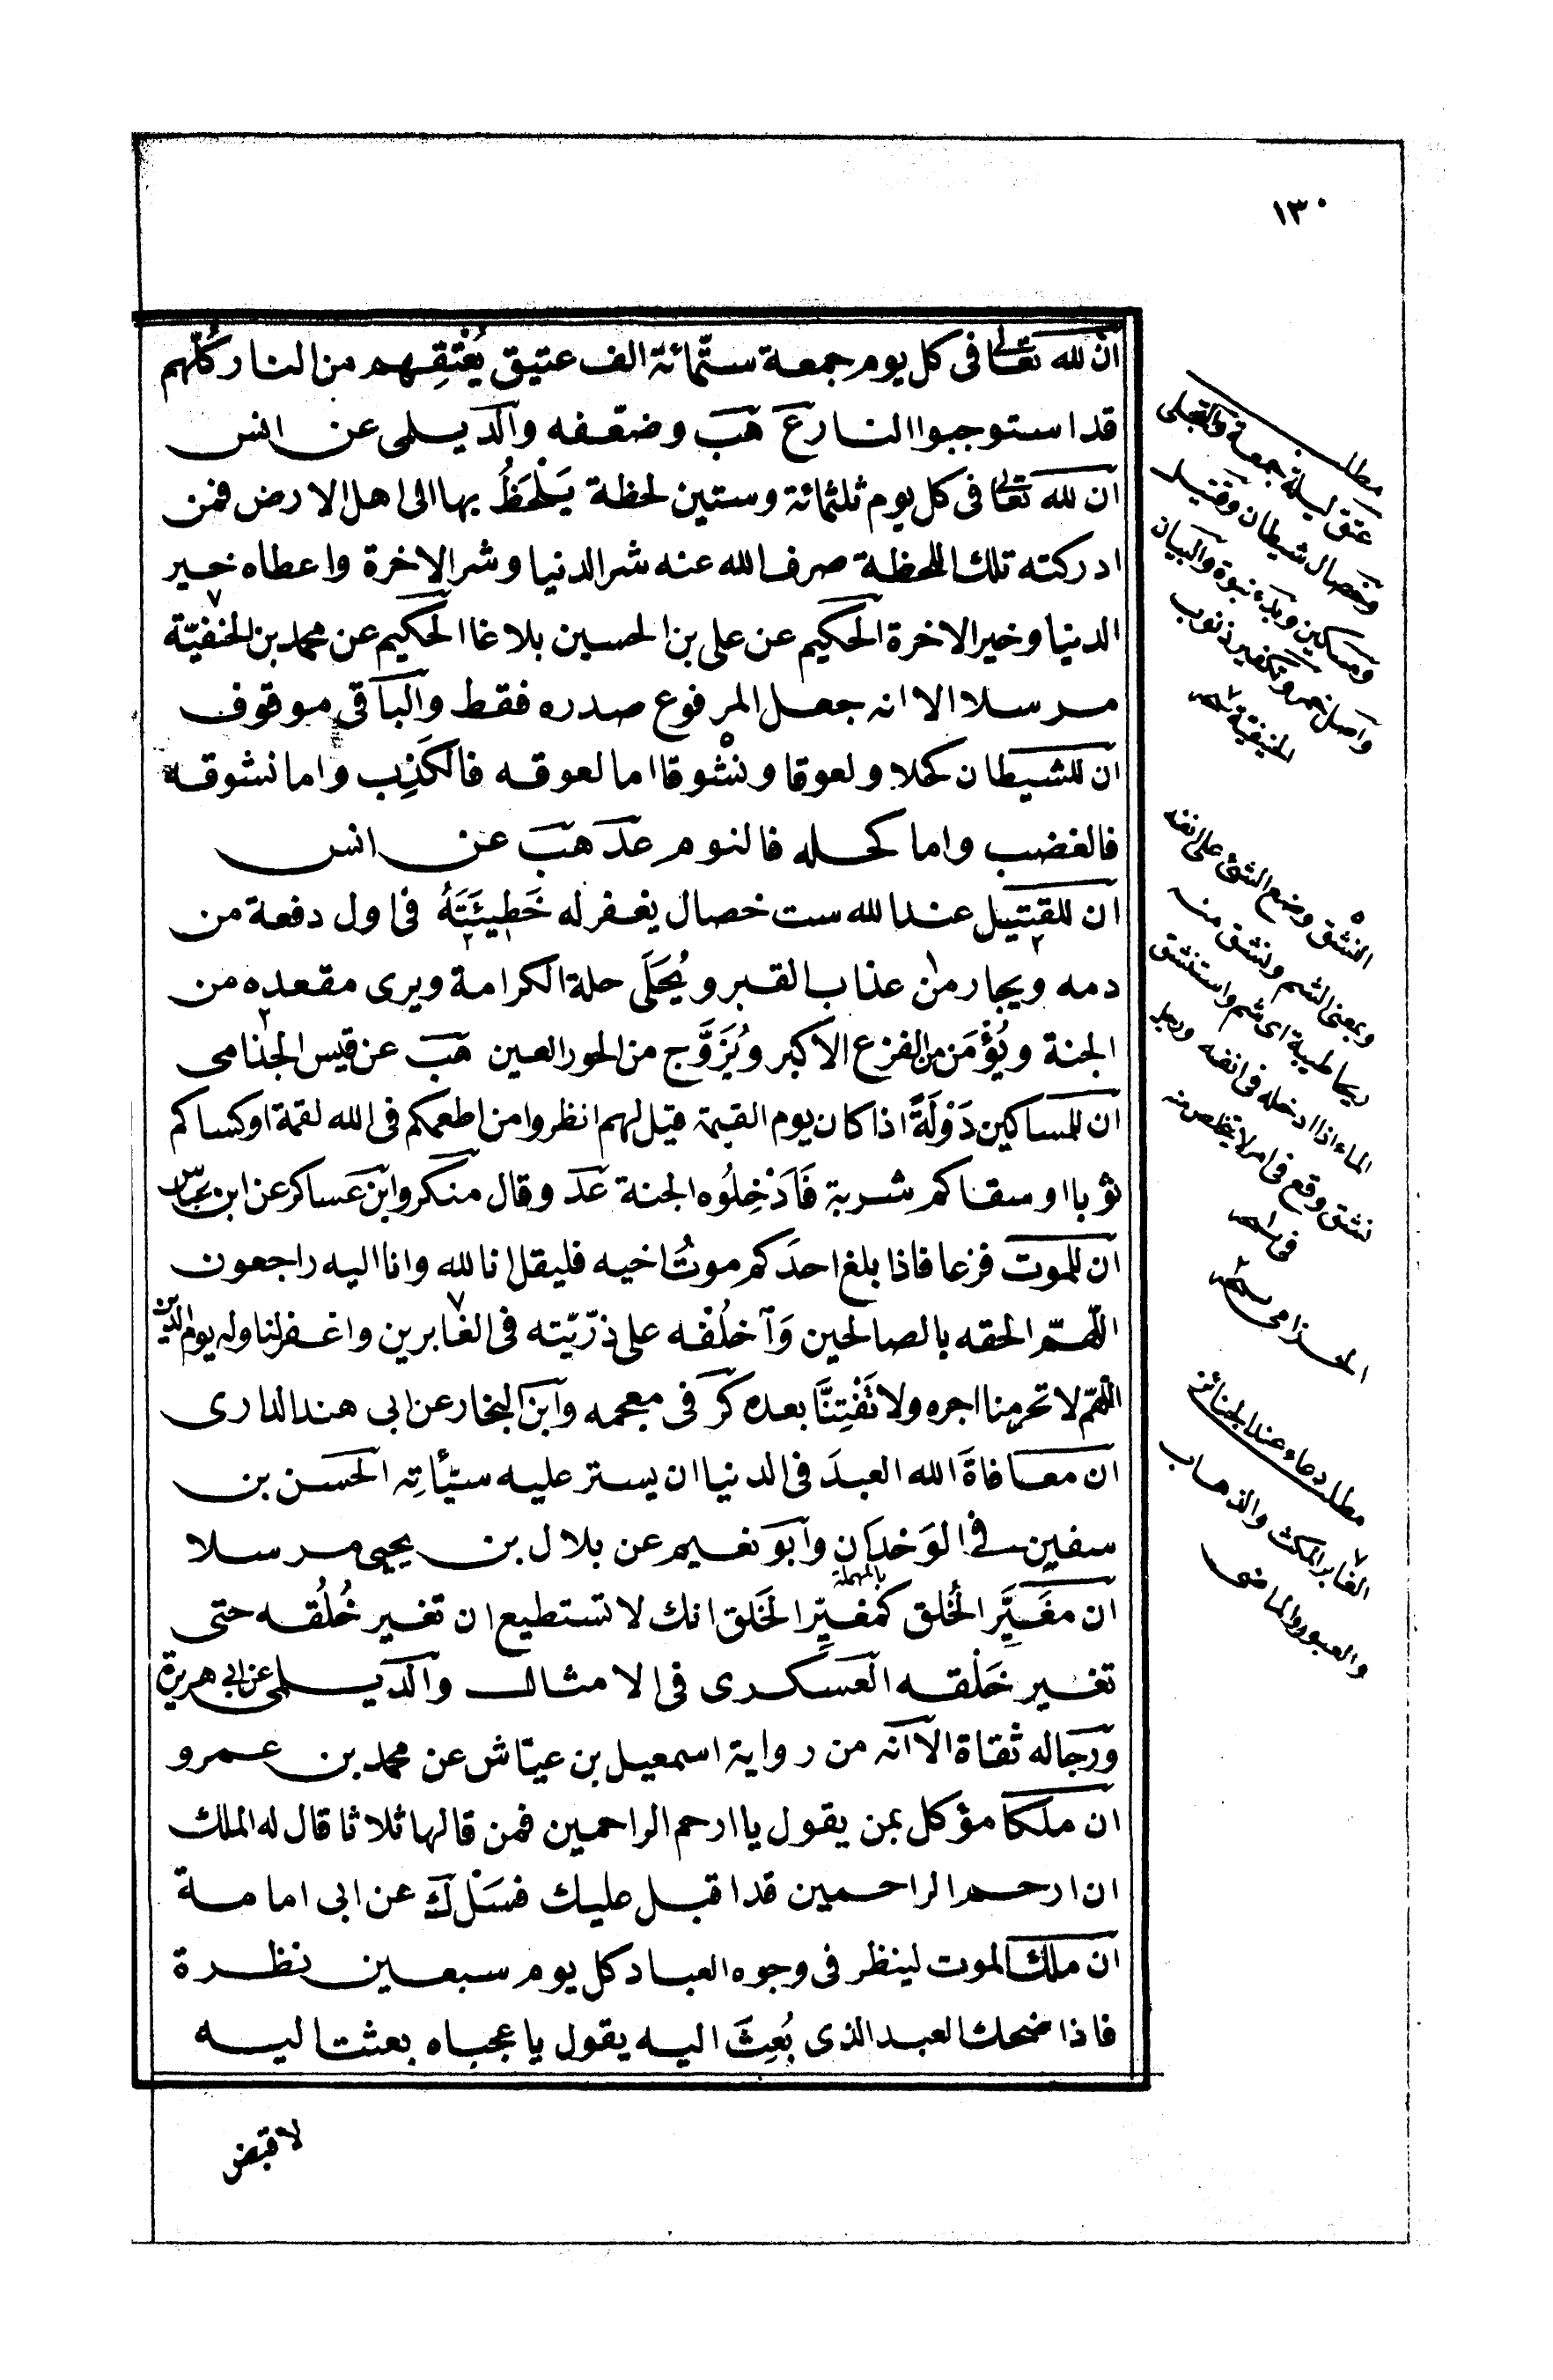 ١٣٠
ان لله تعالى فى كل يوم جمعة ستّمائة الف عتيق يُعْتِقِهم من النار كُلّهم
قد استوجبوا النار ع هب وضعّفه والديلمى عن انس
ان لله تعالى فى كل يوم ثلثمائة وستين لحظة يَلْحَظُ بها الى اهل الارض فمن
ادركته تلك اللحظة صرف الله عنه شر الدنيا وشر الاخرة واعطاه خير
الدنيا وخير الاخرة الحكيم عن على بن الحسين بلاغا الحكيم عن محمد بن الحنفيّة
مرسلا الا انه جعل المرفوع صدره فقط والباقى موقوف
ان للشيطان كحلا ولعوقا ونشوقا اما لعوقه فالكَذِب واما نشوقه
فالغضب واما كحله فالنوم عد هب عن انس
ان للقتيل عند الله ست خصال يغفر له خَطِيئَتَهُ فى اول دفعة من
دمه ويجار من عذاب القبر ويُحَلَّى حلة الكرامة ويرى مقعده من
الجنة ويُؤْمَن من الفزع الاكبر ويُزَوَّج من الحور العين هب عن قيس الجذامى
ان للمساكين دَوْلَةً اذا كان يوم القيمة قيل لهم انظروا من اطعمكم فى الله لقمة اوكساكم
ثوبا اوسقاكم شربة فَاَدْخِلُوه الجنة عد وقال منكر وابن عساكر عن ابن عباس
ان للموت فزعا فاذا بلغ احدَكم موتُ اخيه فليقل انا لله وانا اليه راجعون
اللّهمّ الحقه بالصالحين وَاَخلُفْه على ذرّيّته فى الغابرين واغفر لنا وله يوم الدين
اللّهمّ لا تحرمنا اجره ولا تَفْتِنَّا بعده كر فى معجمه وابن النجار عن ابى هند الدارى
ان معافاةَ الله العبدَ فى الدنيا ان يستر عليه سيّأتِه الحسن بن
سفين فى الوَحْدَان وابو نعيم عن بلال بن يحيى مرسلا
بالمهملة
ان مغَيِّرَ الخُلق كمغيِّر الخَلق انك لا تستطيع ان تغير خُلُقه حتى
تغير خَلْقه العسكرى فى الامثال والديلمى عن ابى هريرة
ورجاله ثقاة الا انّه من رواية اسمعيل بن عيّاش عن محمد بن عمرو
ان ملكا مؤكل بمن يقول يا ارحم الراحمين فمن قالها ثلاثا قال له الملك
ان ارحم الراحمين قد اقبل عليك فسَلْ ك عن ابى امامة
ان ملك الموت لينظر فى وجوه العباد كل يوم سبعين نظرة
فاذا ضحك العبد الذى بُعِثَ اليه يقول يا عجباه بعثت اليه
لاقبض
مطلب
عتق ليلة جمعة والتجلى
وخصال شيطان وقتيل
ومسكين وبدء نبوة والبيان
واصل خمر وتكفير ذنوب
الحنيفية
النشق وضع الشئ على انفه
وبمعنى الشم ونشق منه
ريحا طيبة اى شم واستنشق
الماء اذا ادخله فى انفه ورجل
نشق وقع فى امر لا يتخلص منه
الحذامى
مطلب دعاء عند الجنائز
الغابر المكث والذهاب
والعبور والماضى